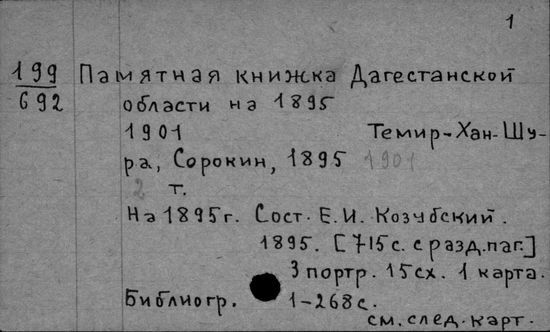 1
199 Памятная книжка Дагестанской
692 области на 1895
1901 Темир-Хан-Шу-
ра, Сорокин, 1895 1901
2 т.
На 1895г. Сост. Е.И. Козубский.
1895. [715с. с разд.паг.]
3 портр. 15сх. 1 карта.
Библиогр. 1-268с.
см. след. карт.